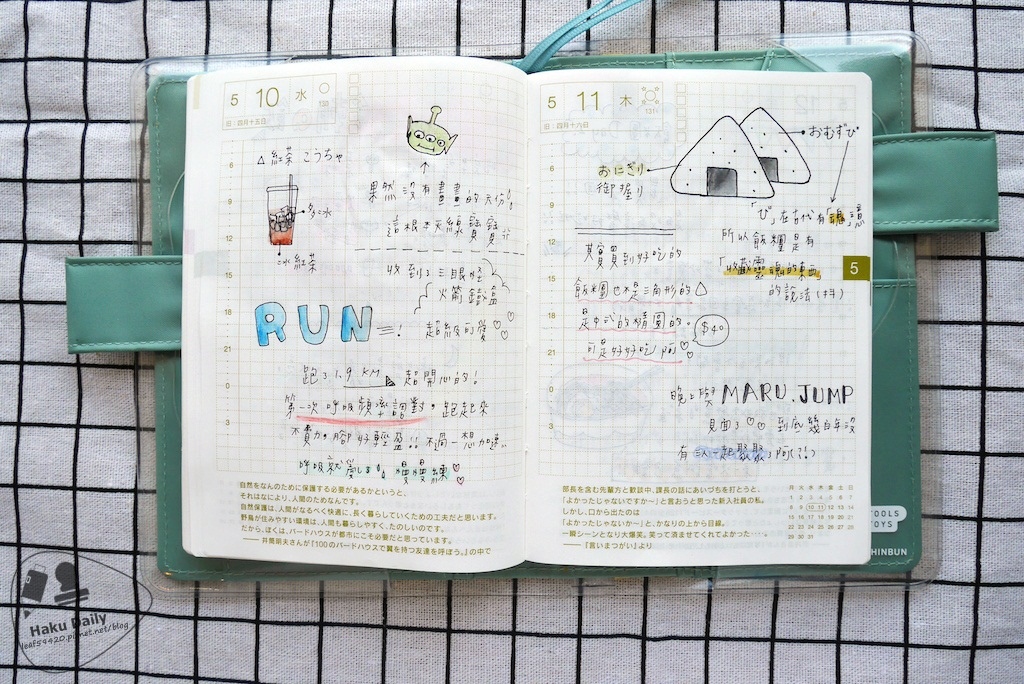 5 10 水
130
旧:四月十五日
6
9
12
15
18
21
0
3
△ 紅茶 こうちゃ
多冰
冰紅茶
果然沒有畫畫的天份!
這根本天線寶寶
收到了三眼怪
火箭鐵盒
超級可愛♡
RUN
跑了1.9 KM 超開心的!
第一次呼吸頻率調對。跑起來
不費力。腳好輕盈!!不過一想加速
呼吸就亂 慢慢練♡
自然をなんのために保護する必要があるかというと、
それはなにより、人間のためなんです。
自然保護は、人間がなるべく快適に、長く暮らしていくための工夫だと思います。
野鳥が住みやすい環境は、人間も暮らしやすく、たのしいのです。
だから、ぼくは、バードハウスが都市にこそ必要だと思っています。
——井筒明夫さんが『100のバードハウスで翼を持つ友達を呼ぼう。』の中で
5 11 木
131
旧:四月十六日
6
9
12
15
18
21
0
3
おむずび
おにぎり
御握り
「び」在古代有「魂」意
所以飯糰是有
「收藏靈魂的東西」
的說法(抖)
其實買到好吃的
飯糰也不是三角形的△
是中式的橢圓的。
$40
可是好好吃阿♡
晚上與 MARU. JUMP
見面了♡♡ 到底幾百年沒
有三人一起聚聚了阿(?!)
部長を含む先輩方と歓談中、課長の話にあいづちを打とうと、
「よかったじゃないですか〜」と言おうと思った新入社員の私。
しかし、口から出たのは
「よかったじゃないか〜」と、かなりの上から目線。
一瞬シーンとなり大爆笑。笑って済ませてくれてよかった……。
——『言いまつがい』より
月 火 水 木 金 土 日
1 2 3 4 5 6 7
8 9 10 11 12 13 14
15 16 17 18 19 20 21
22 23 24 25 26 27 28
29 30 31
5
TOOLS
TOYS
SHINBUN
Haku Daily
leaf59420.pixnet.net/blog